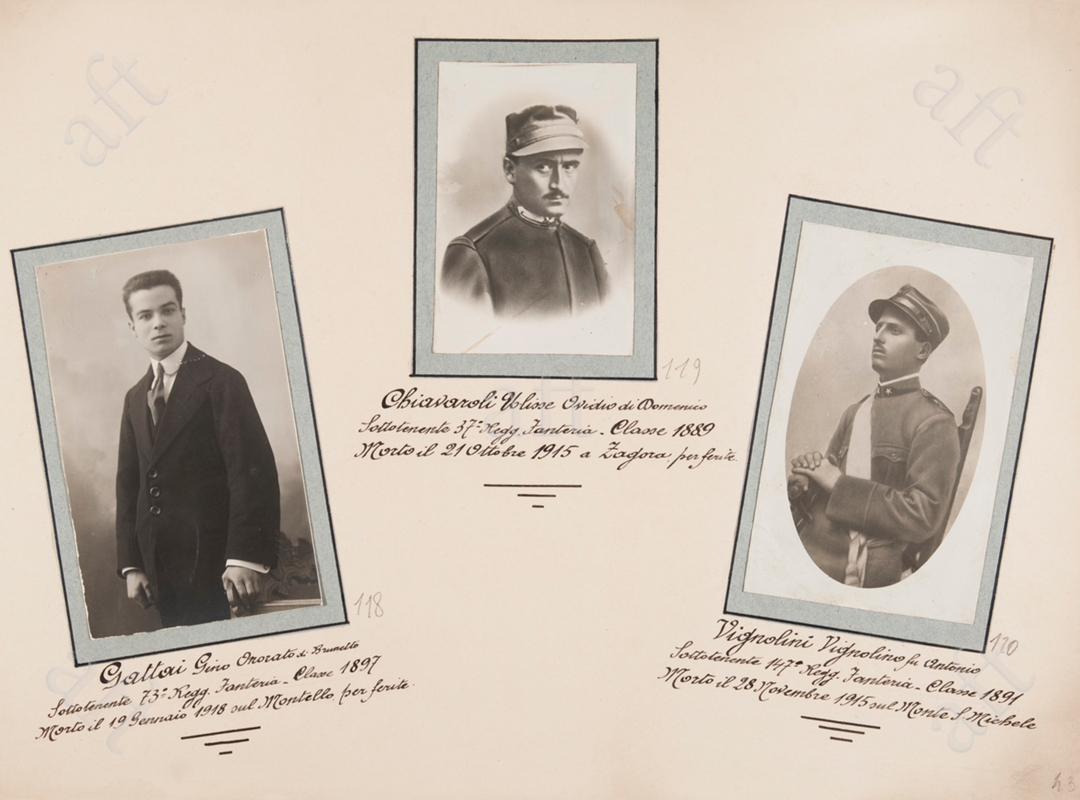 aft
aft
119
Chiavaroli Ulisse Ovidio di Domenico
Sottotenente 37º Regg. Fanteria - Classe 1889
Morto il 21 Ottobre 1915 a Zagora, per ferite.
118
Gattai Gino Onorato di Brunetto
Sottotenente 73º Regg. Fanteria - Classe 1897
Morto il 19 Gennaio 1918 sul Montello, per ferite.
120
Vignolini Vignolino fu Antonio
Sottotenente 147º Regg. Fanteria - Classe 1891
Morto il 28 Novembre 1915 sul Monte S. Michele
43